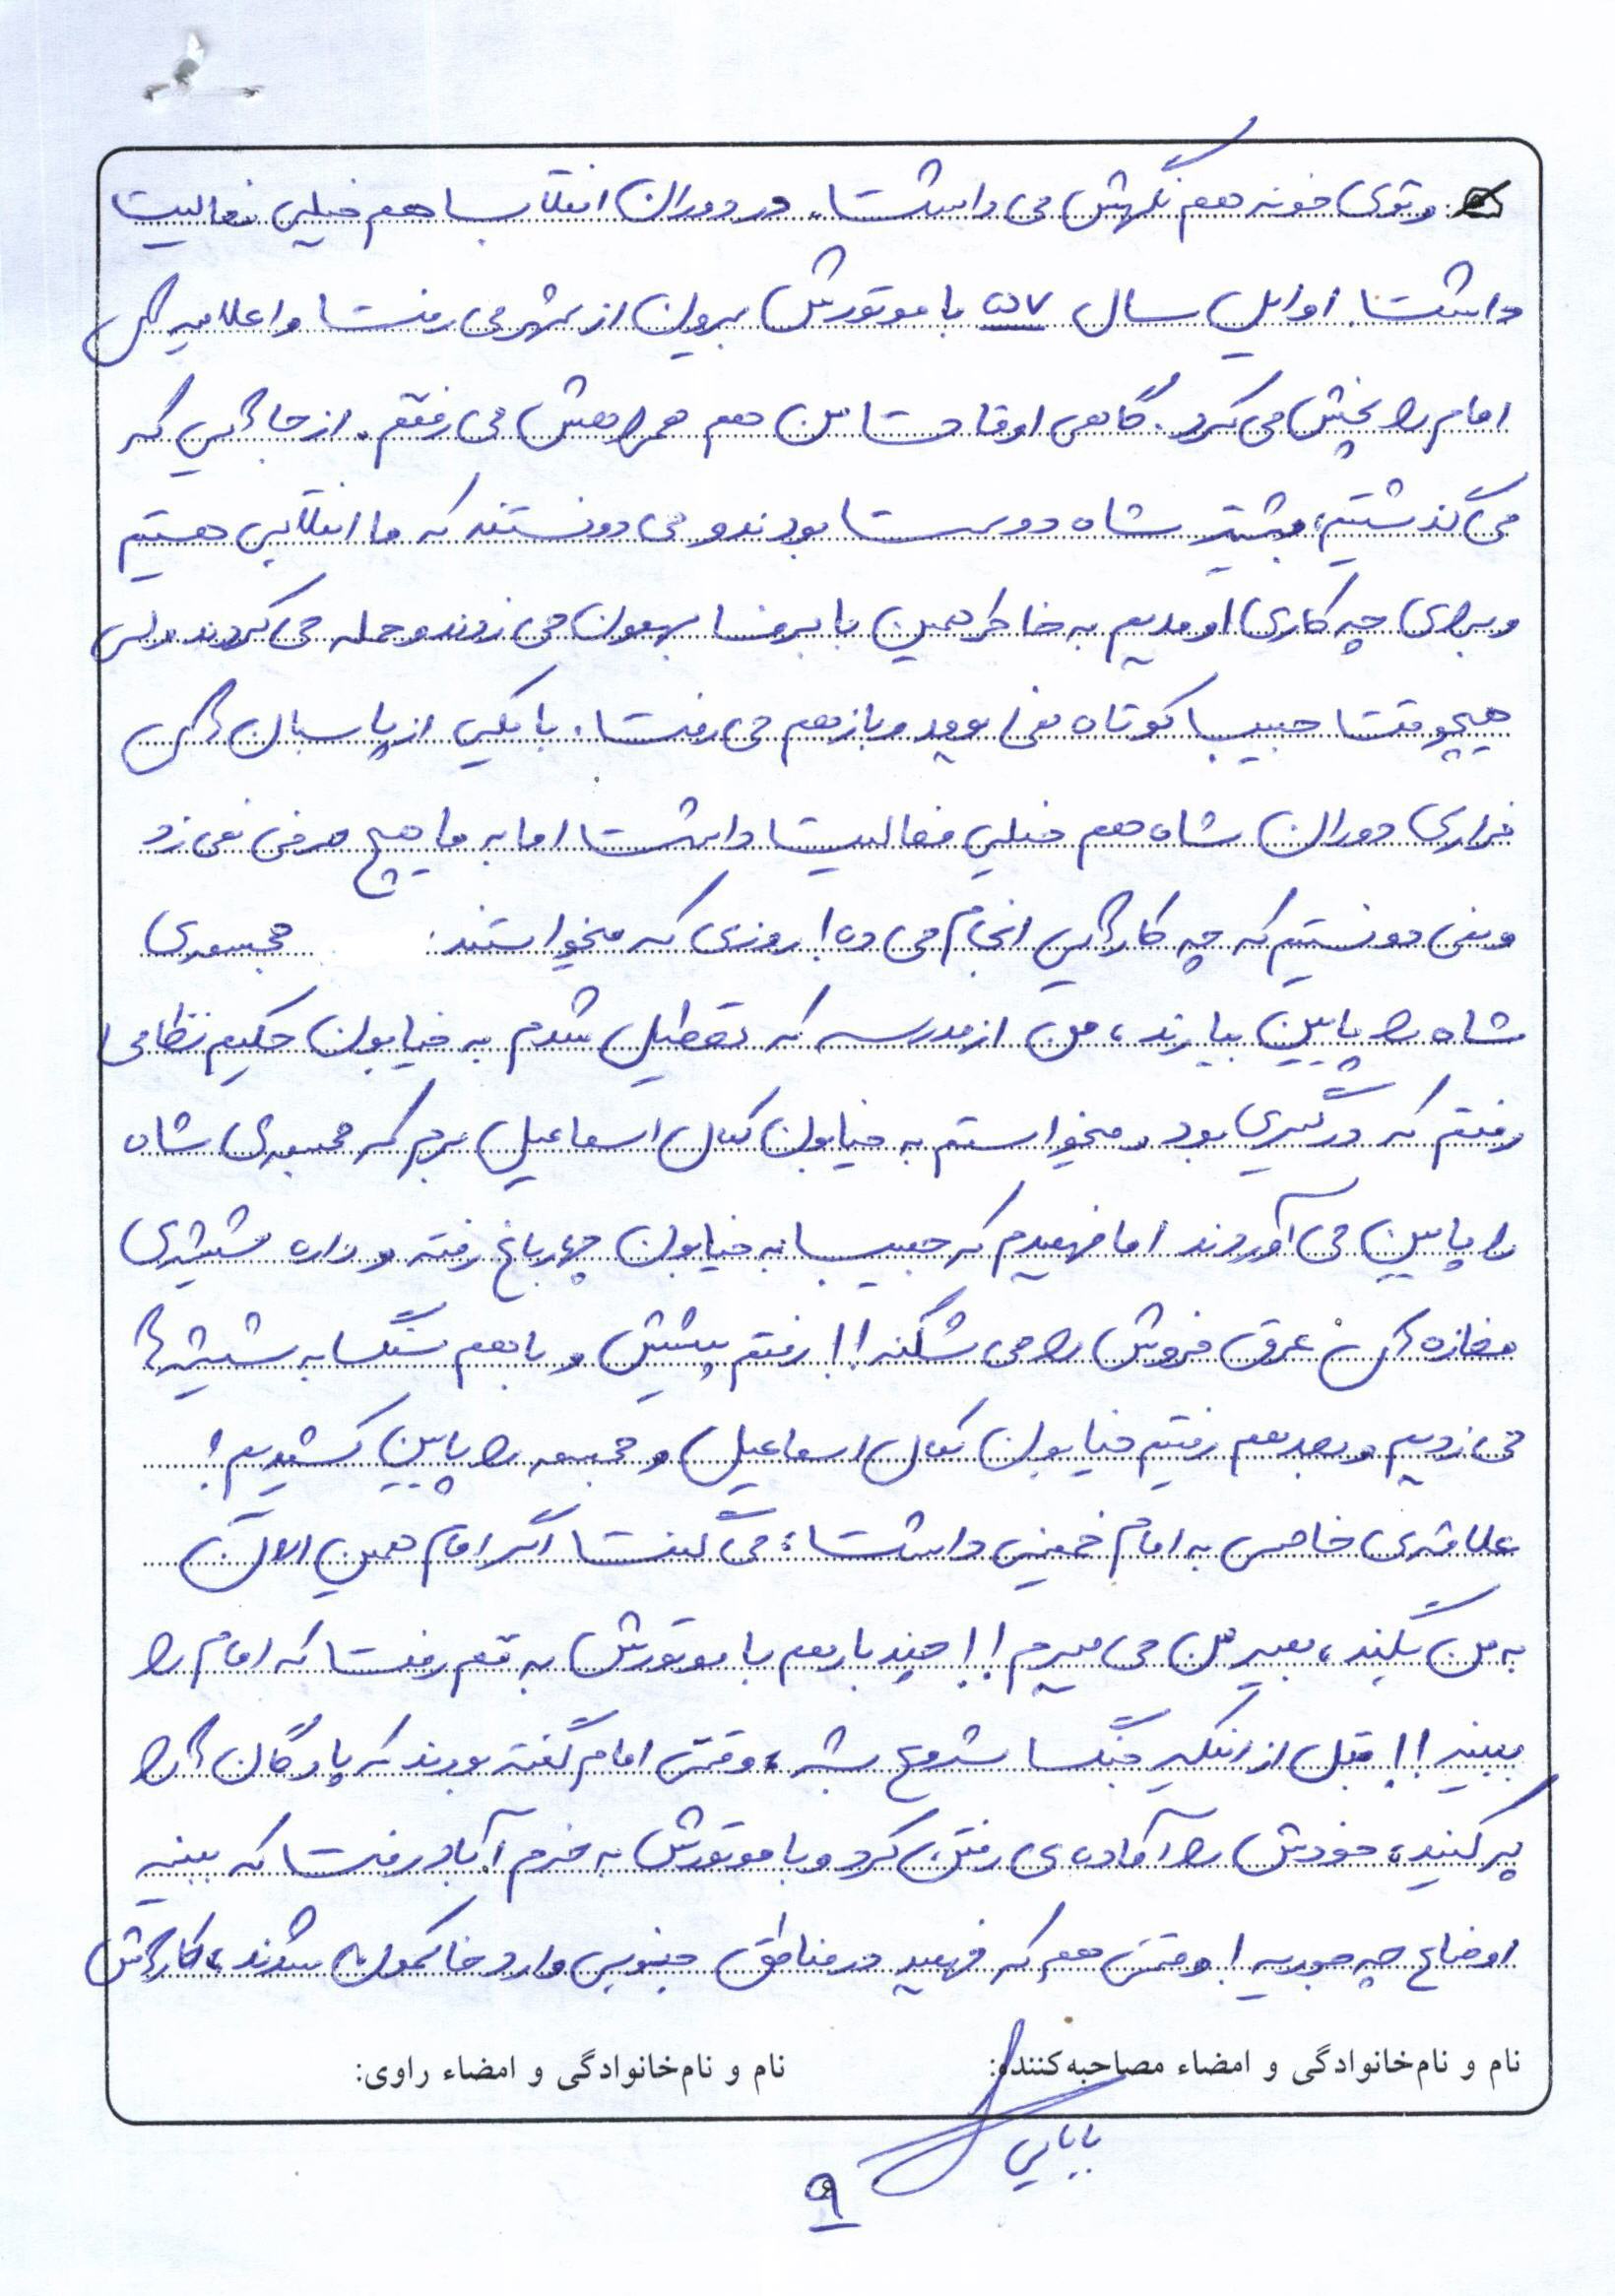 وتوی خونه هم نگهش می داشت. در دوران انقلاب هم خیلی فعالیت
داشت. اوایل سال ۵۷ با موتورش بیرون از شهر می رفت و اعلامیه های
امام را پخش می کرد. گاهی اوقات من هم همراهش می رفتم. از جاهایی که
می گذشتیم، بیشتر شاه دوست بودند و می دونستند که ما انقلابی هستیم
و برای چه کاری اومدیم به خاطر همین با برف بهمون می زدند و حمله می کردند ولی
هیچوقت حبیب کوتاه نمی یومد و بازهم می رفت. با یکی از پاسبان های
فراری دوران شاه هم خیلی فعالیت داشت اما به ما هیچ حرفی نمی زد
ونمی دونستیم که چه کارهایی انجام می ده! روزی که میخواستند: مجسمه ی
شاه را پایین بیارند، من از مدرسه که تعطیل شدم به خیابون حکیم نظامی
رفتم که درگیری بود. میخواستم به خیابون کمال اسماعیل برم که مجسمه ی شاه
را پایین می آوردند اما فهمیدم که حبیب به خیابون چهارباغ رفته و داره شیشه ی
مغازه های عرق فروش را می شکنه!! رفتم پیشش و باهم سنگ به شیشه ها
می زدیم و بعد هم رفتیم خیابون کمال اسماعیل و مجسمه را پایین کشیدیم!
علاقه ی خاصی به امام خمینی داشت؛ می گفت اگر امام همین الآن
به من بگند، بمیر من می میرم!! چند بار هم با موتورش به قم رفت که امام را
ببینه!! قبل از اینکه جنگ شروع بشه، وقتی امام گفته بودند که پادگان ها را
پر کنید، خودش را آماده ی رفتن کرد و با موتورش به خرم آباد رفت که ببینه
اوضاع چه جوریه! وقتی هم که فهمید در مناطق جنوبی وارد خاکمون شدند، کارهاش
نام و نام‌خانوادگی و امضاء مصاحبه‌کننده: نام و نام‌خانوادگی و امضاء راوی:
بابایی
۹